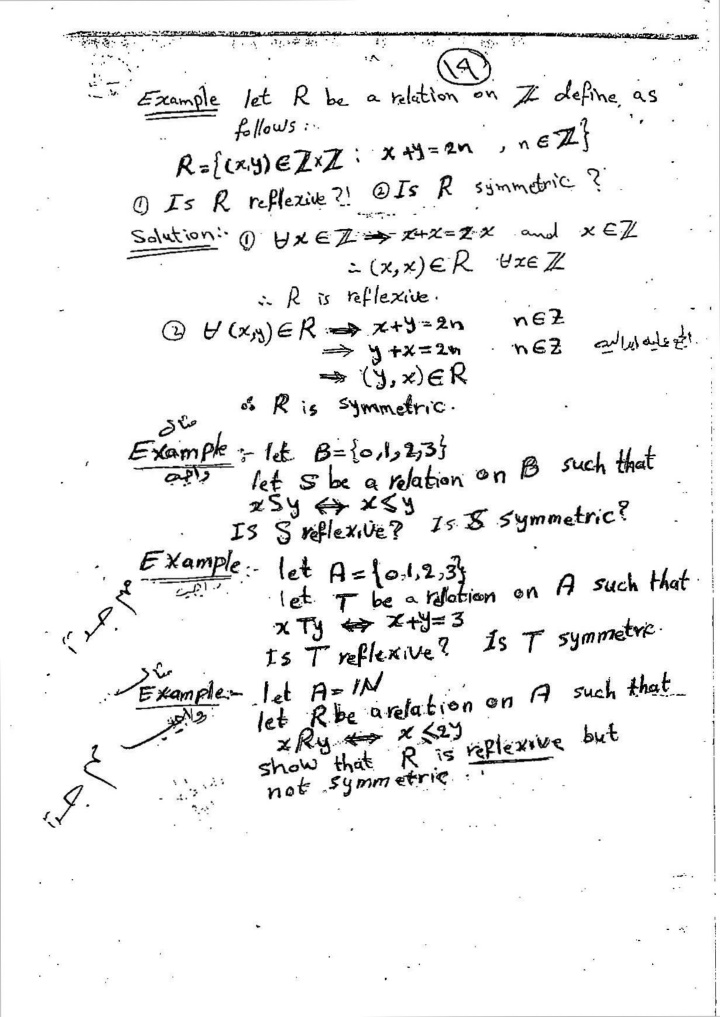 19
Example let R be a relation on ℤ define as
follows :-
R={(x,y)∈ℤ×ℤ : x+y=2n , n∈ℤ}
① Is R reflexive?! ② Is R symmetric ?
Solution:- ① ∀x∈ℤ ⇒ x+x=2x and x∈ℤ
∴ (x,x)∈R ∀x∈ℤ
∴ R is reflexive.
② ∀(x,y)∈R ⇒ x+y=2n n∈ℤ
⇒ y+x=2n n∈ℤ
⇒ (y,x)∈R
∴ R is symmetric.
مثال
Example :- let B={0,1,2,3}
واجب
let S be a relation on B such that
xSy ⇔ x≤y
IS S reflexive? Is S symmetric?
Example:- let A={0,1,2,3}
واجب
let T be a relation on A such that
xTy ⇔ x+y=3
Is T reflexive? Is T symmetric.
مثال
Example:- let A=ℕ
واجب
let R be a relation on A such that
xRy ⇔ x≤2y
show that R is reflexive but
not symmetric.